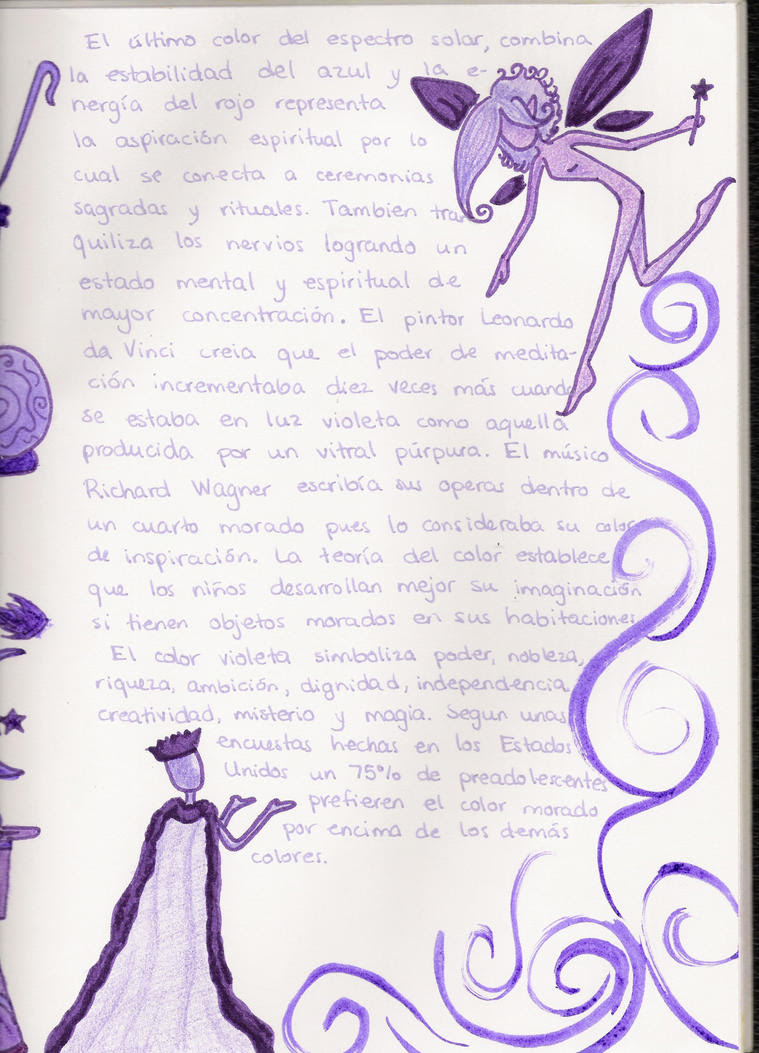 El último color del espectro solar, combina
la estabilidad del azul y la e-
nergía del rojo representa
la aspiración espiritual por lo
cual se conecta a ceremonias
sagradas y rituales. Tambien tran
quiliza los nervios logrando un
estado mental y espiritual de
mayor concentración. El pintor Leonardo
da Vinci creia que el poder de medita-
ción incrementaba diez veces más cuando
se estaba en luz violeta como aquella
producida por un vitral púrpura. El músico
Richard Wagner escribía sus operas dentro de
un cuarto morado pues lo consideraba su color
de inspiración. La teoría del color establece
que los niños desarrollan mejor su imaginación
si tienen objetos morados en sus habitaciones.
El color violeta simboliza poder, nobleza,
riqueza, ambición, dignidad, independencia,
creatividad, misterio y magia. Segun unas
encuestas hechas en los Estados
Unidos un 75% de preadolescentes
prefieren el color morado
por encima de los demás
colores.